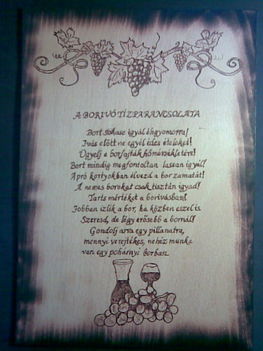 A BORIVÓ TÍZPARANCSOLATA
Bort sohase igyál éhgyomorra!
Ivás előtt ne egyél édes ételeket!
Ügyelj a borfajták hőmérsékletére!
Bort mindig megfontoltan lassan igyál!
Apró kortyokban élvezd a bor zamatát!
A nemes borokat csak tisztán igyad!
Tarts mértéket a borivásban!
Jobban ízlik a bor, ha közben eszel is.
Szeresd, de légy erősebb a bornál!
Gondolj arra egy pillanatra,
mennyi verejtékes, nehéz munka
van egy pohárnyi borban.